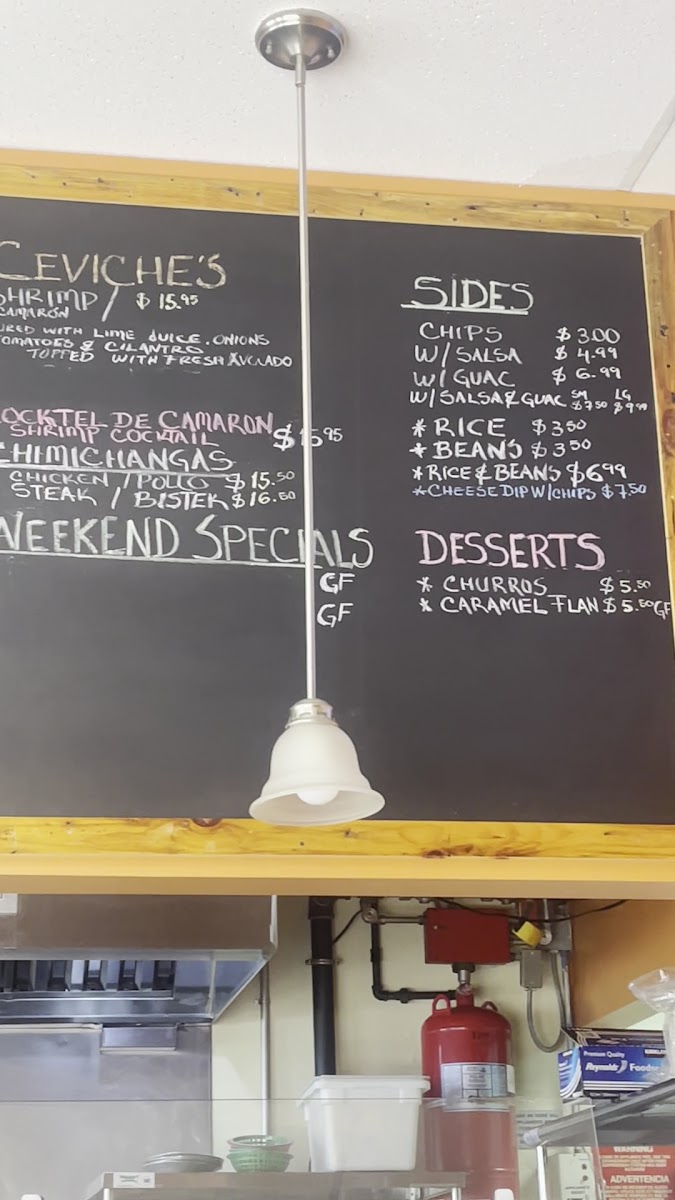 CEVICHE'S
SHRIMP / $ 15.95
CAMARÓN
URED WITH LIME JUICE. ONIONS
TOMATOES & CILANTRO
TOPPED WITH FRESH AVOCADO
OCKTEL DE CAMARON
SHRIMP COCKTAIL $15.95
CHIMICHANGAS
CHICKEN / POLLO $15.50
STEAK / BISTEK $16.50
WEEKEND SPECIALS
GF
GF
SIDES
CHIPS $3.00
W/SALSA $4.99
W/GUAC $6.99
W/SALSA & GUAC SM $7.50 LG $9.99
* RICE $3.50
* BEANS $3.50
* RICE & BEANS $6.99
* CHEESE DIP W/CHIPS $7.50
DESSERTS
* CHURROS $5.50
* CARAMEL FLAN $5.50 GF
Premium Quality
Reynolds
Foodse
WARNING
ADVERTENCIA